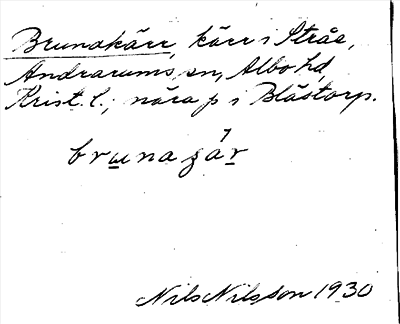 Brunakärr, kärr i Stråe,
Andrarums sn, Albo hd,
Krist. l.; nära p i Blåstorp.
brunaʒár
Nils Nilsson 1930